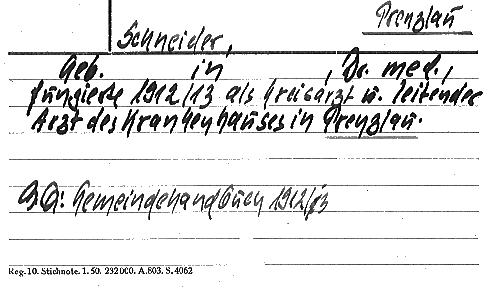 Prenzlau
Schneider,
Geb. in , Dr. med.,
fungierte 1912/13 als Kreisarzt u. leitender
Arzt des Krankenhauses in Prenzlau.
BQ: Gemeindehandbuch 1912/13
Reg. 10. Stichnote. 1. 50. 232000. A.803. S. 4062